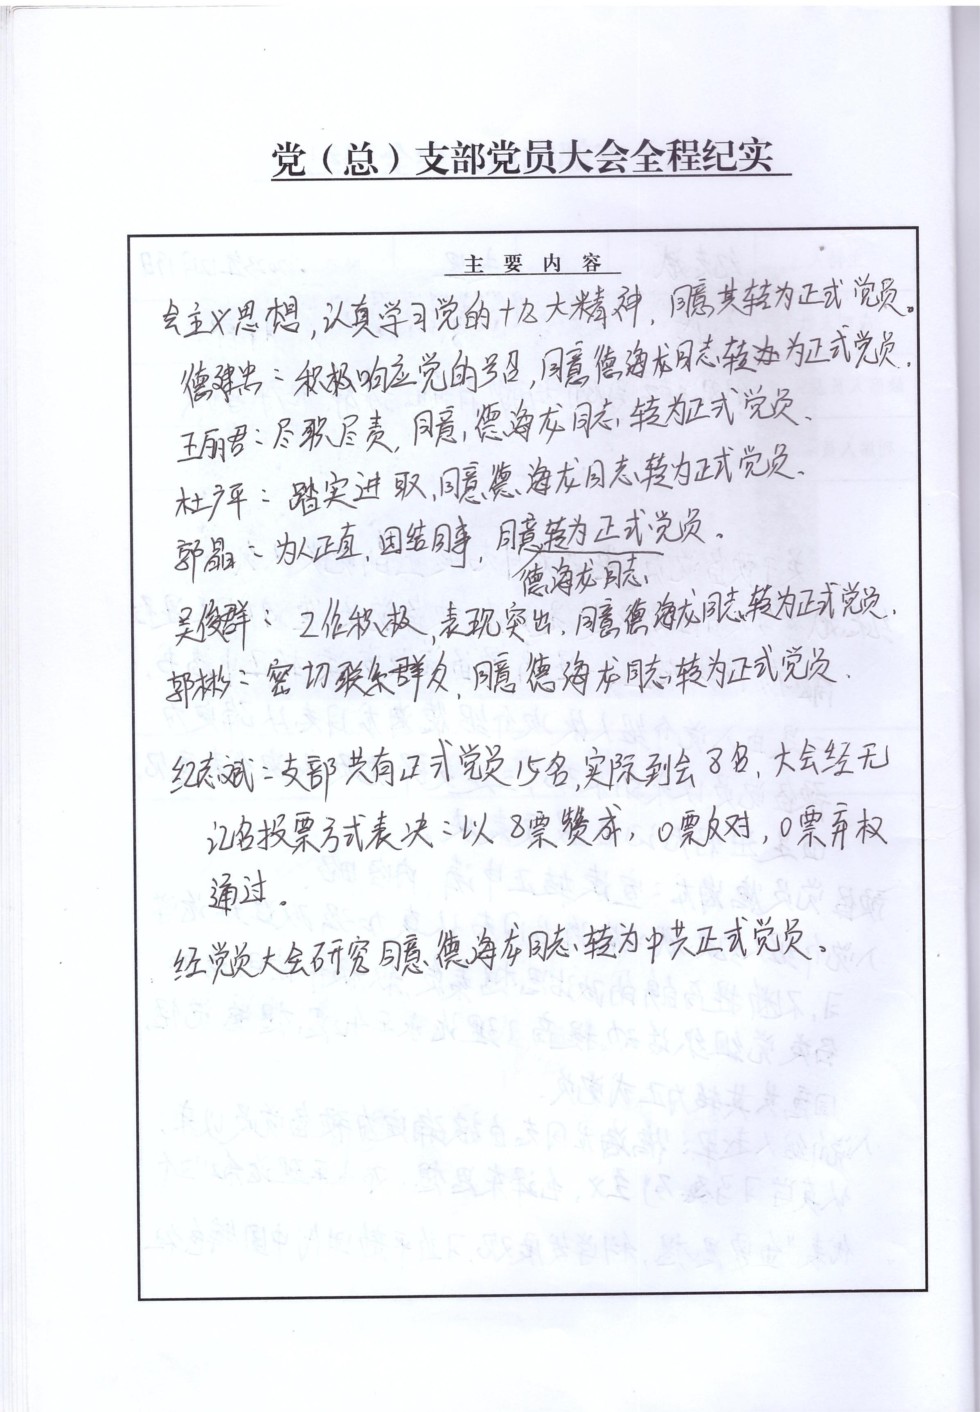 党（总）支部党员大会全程纪实
主 要 内 容
会主义思想，认真学习党的十九大精神，同意其转为正式党员。
德建忠：积极响应党的号召，同意德海龙同志转为正式党员．
王丽君：尽职尽责，同意德海龙同志转为正式党员．
杜广平：踏实进取，同意德海龙同志转为正式党员．
郭晶：为人正直，团结同事，同意转为正式党员。
德海龙同志
吴俊群：工作积极，表现突出，同意德海龙同志转为正式党员．
郭彬：密切联系群众，同意德海龙同志转为正式党员．
纪志斌：支部共有正式党员15名，实际到会8名，大会经无
记名投票方式表决：以8票赞成，0票反对，0票弃权
通过。
经党员大会研究同意德海龙同志转为中共正式党员。